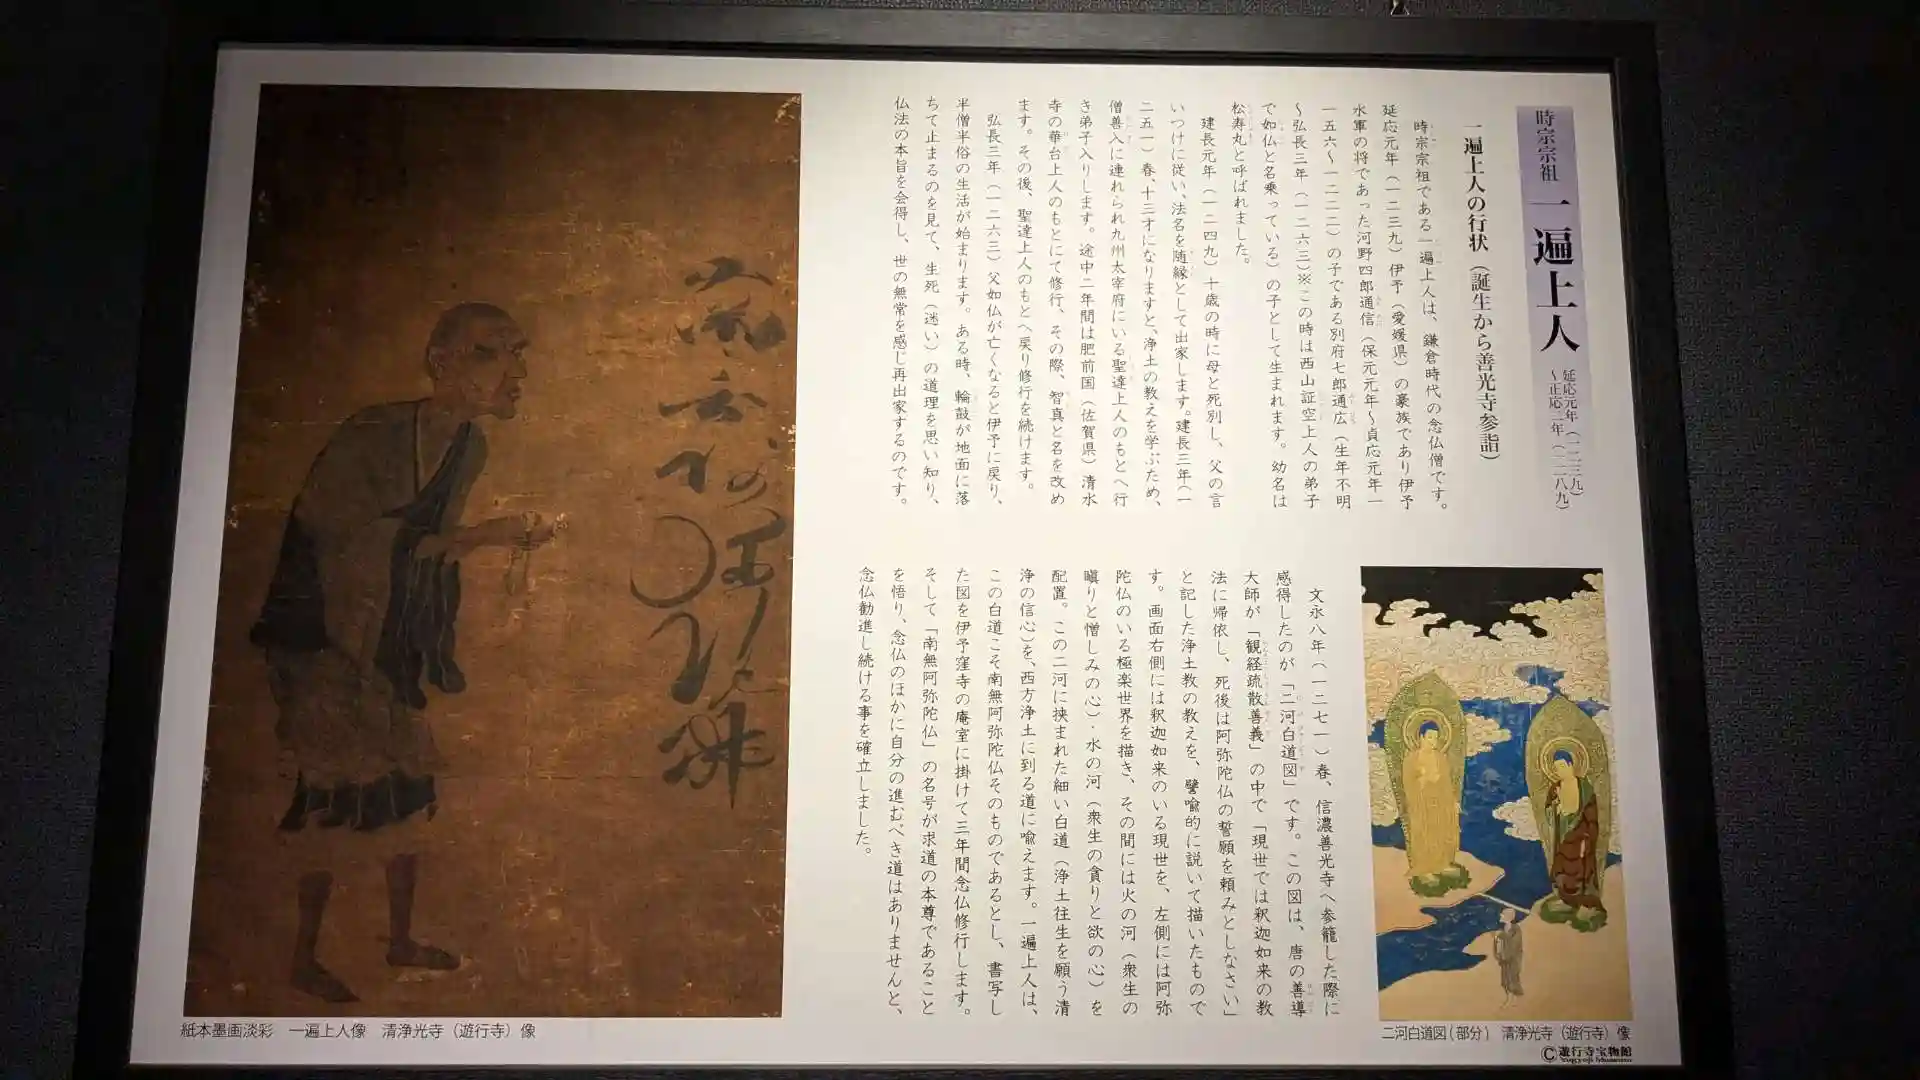 時宗宗祖 一遍上人 延応元年(一二三九)
~正応二年(一二八九)
一遍上人の行状(誕生から善光寺参詣)
時宗宗祖である一遍上人は、鎌倉時代の念仏僧です。
延応元年(一二三九)伊予(愛媛県)の豪族であり伊予
水軍の将であった河野四郎通信(保元元年~貞応元年一
一五六~一二二二)の子である別府七郎通広(生年不明
~弘長三年(一二六三)※この時は西山証空上人の弟子
で如仏と名乗っている)の子として生まれます。幼名は
松寿丸と呼ばれました。
建長元年(一二四九)十歳の時に母と死別し、父の言
いつけに従い、法名を随縁として出家します。建長三年(一
二五一)春、十三才になりますと、浄土の教えを学ぶため、
僧善入に連れられ九州太宰府にいる聖達上人のもとへ行
き弟子入りします。途中二年間は肥前国(佐賀県)清水
寺の華台上人のもとにて修行、その際、智真と名を改め
ます。その後、聖達上人のもとへ戻り修行を続けます。
弘長三年(一二六三)父如仏が亡くなると伊予に戻り、
半僧半俗の生活が始まります。ある時、輪鼓が地面に落
ちて止まるのを見て、生死(迷い)の道理を思い知り、
仏法の本旨を会得し、世の無常を感じ再出家するのです。
文永八年(一二七一)春、信濃善光寺へ参籠した際に
感得したのが「二河白道図」です。この図は、唐の善導
大師が「観経疏散善義」の中で「現世では釈迦如来の教
法に帰依し、死後は阿弥陀仏の誓願を頼みとしなさい」
と記した浄土教の教えを、譬喩的に説いて描いたもので
す。画面右側には釈迦如来のいる現世を、左側には阿弥
陀仏のいる極楽世界を描き、その間には火の河(衆生の
瞋りと憎しみの心)・水の河(衆生の貪りと欲の心)を
配置。この二河に挟まれた細い白道(浄土往生を願う清
浄の信心)を、西方浄土に到る道に喩えます。一遍上人は、
この白道こそ南無阿弥陀仏そのものであるとし、書写し
た図を伊予窪寺の庵室に掛けて三年間念仏修行します。
そして「南無阿弥陀仏」の名号が求道の本尊であること
を悟り、念仏のほかに自分の進むべき道はありませんと、
念仏勧進し続ける事を確立しました。
紙本墨画淡彩 一遍上人像 清浄光寺(遊行寺)像
二河白道図(部分) 清浄光寺(遊行寺)像
©遊行寺宝物館
Yugyoji Museum